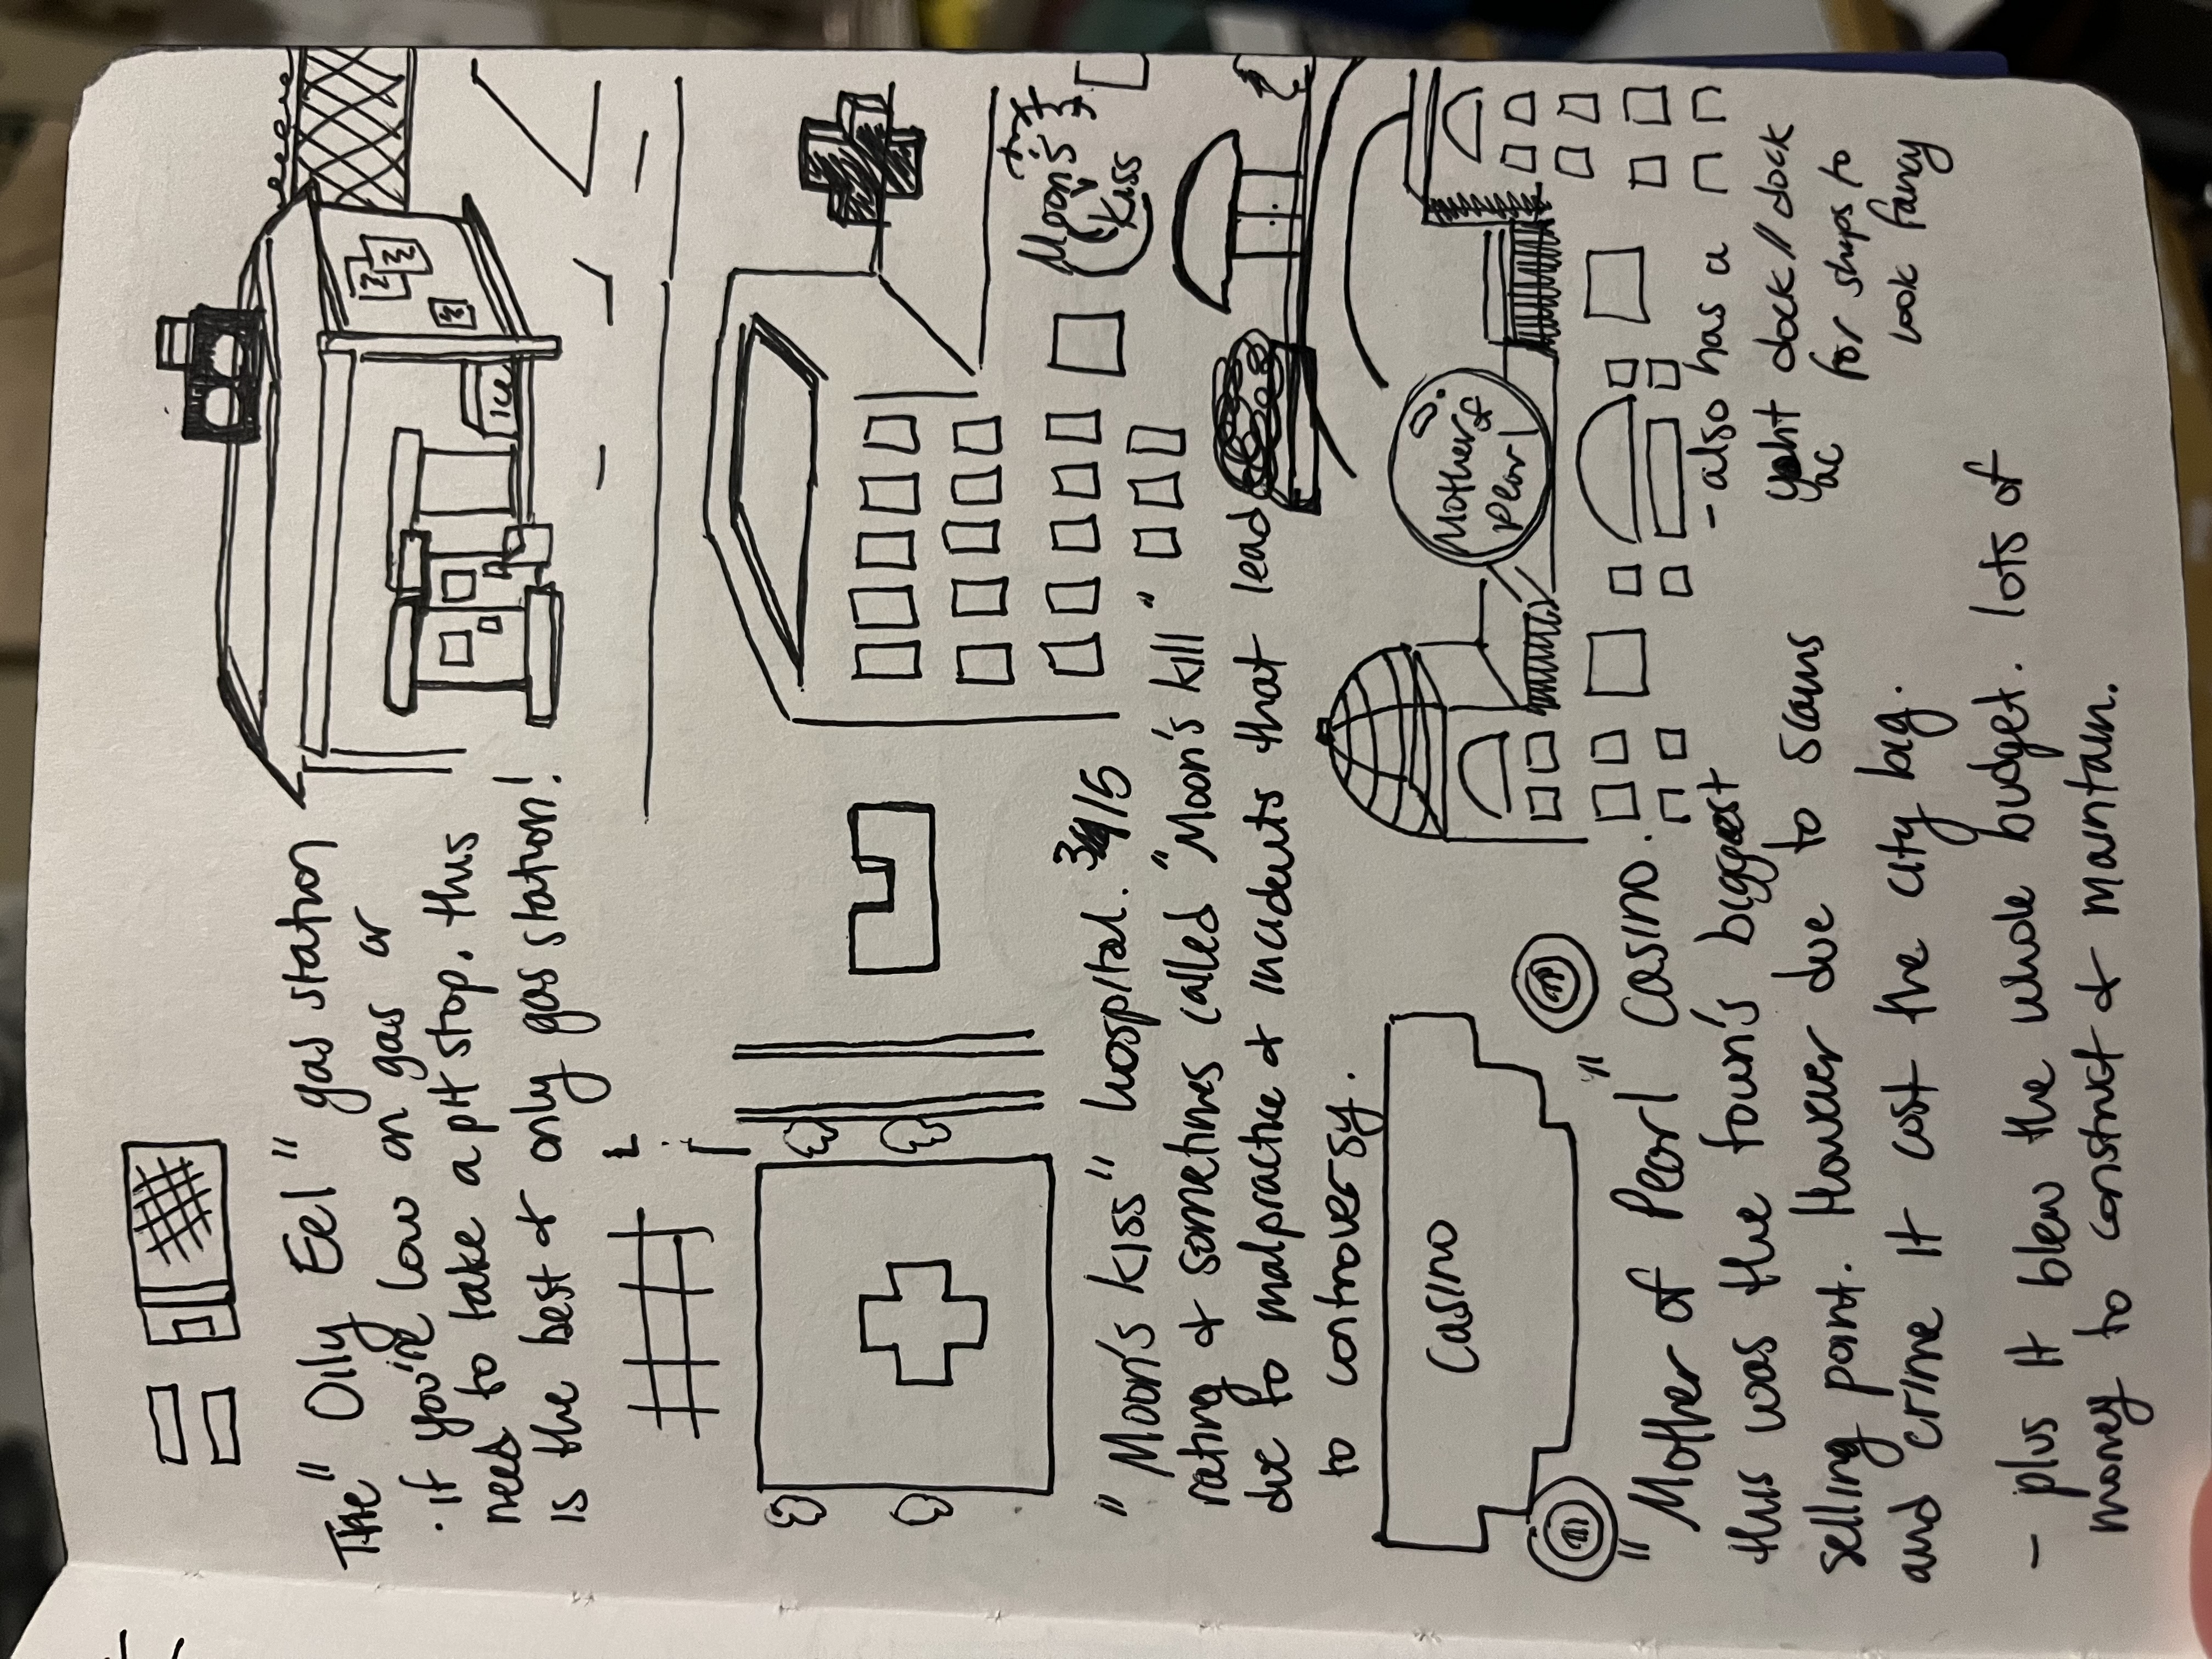 The "Oily Eel" gas station
· if you're low on gas or
need to take a pit stop. this
is the best & only gas station!
Ice
"Moon's kiss" hospital. 3/5
rating & sometimes called "Moon's kill"
due to malpractice & incidents that lead
to controversy.
Moon's
kiss
Casino
Mother of
Pearl
"Mother of Pearl" Casino.
this was the town's biggest
selling point. However due to scams
and crime it cost the city big.
- also has a
yacht dock // dock
for ships to
look fancy
- plus it blew the whole budget. lots of
money to construct & maintain.